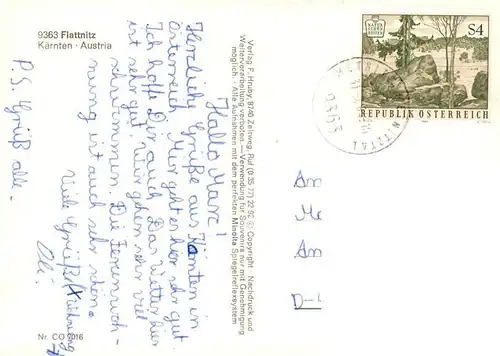 9363 Flattnitz
Kärnten · Austria
Hallo Marc!
Herzliche Grüße aus Kärnten in
Österreich. Mir geht es hier sehr gut.
Ich hoffe Dir auch. Da Wetter hier
ist sehr gut. Wir gehen sehr viel
schwimmen. Die Ferienwoh-
nung ist auch sehr schön.
Viele Grüße
Oli!
P.S. Grüß alle.
Verlag F. Hruby, 8740 Zeltweg, Ruf (0 35 77) 22 52 © Copyright · Nachdruck und
Weiterverarbeitung verboten. — Verwendung für Souvenirs nur mit Genehmigung
möglich. · Alle Aufnahmen mit dem perfekten Minolta Spiegelreflexsystem
Nr. CO 2016
NATUR
SCHÖN
HEITEN
S4
REPUBLIK ÖSTERREICH
9363
An
An
D-